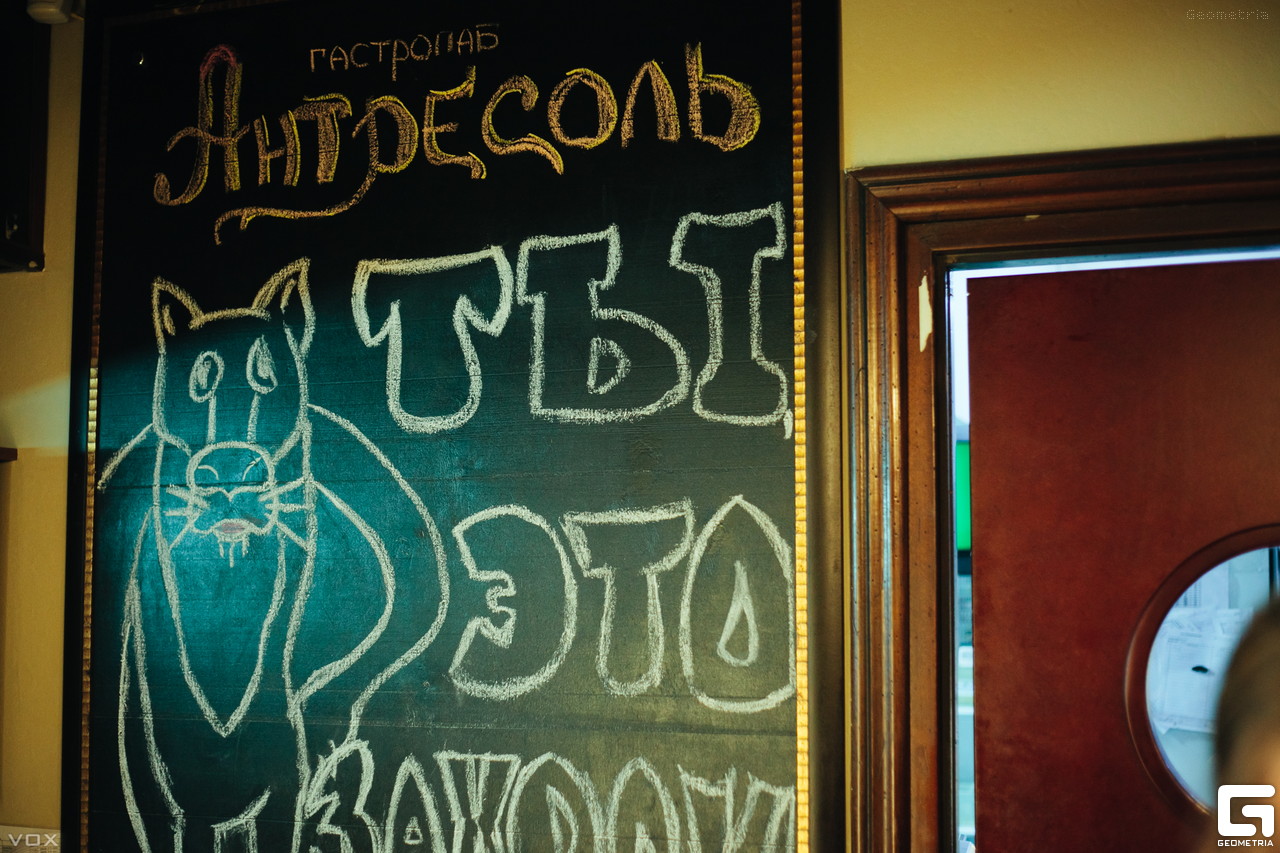 Geometria
ГАСТРОПАБ
АНТРЕСОЛЬ
ТЫ,
ЭТО
VOX
GEOMETRIA